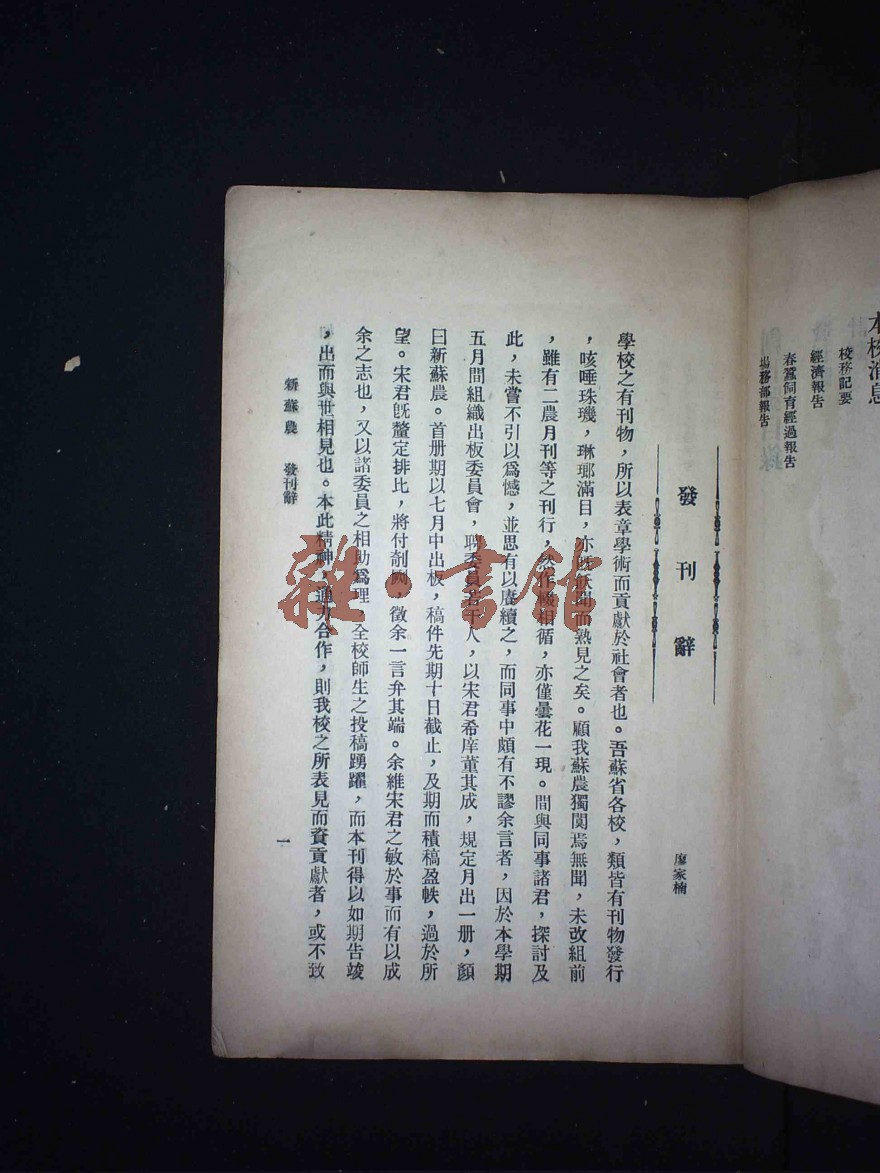 本校消息
校務記要
經濟報告
春蠶飼育經過報告
場務部報告
發刊辭
廖家楠
學校之有刊物，所以表章學術而貢獻於社會者也。吾蘇省各校，類皆有刊物發行
，咳唾珠璣，琳瑯滿目，亦既飫聞而熟見之矣。顧我蘇農獨闃焉無聞，未改組前
，雖有二農月刊等之刊行，然作輟相循，亦僅曇花一現。間與同事諸君，探討及
此，未嘗不引以爲憾，並思有以賡續之，而同事中頗有不謬余言者，因於本學期
五月間組織出板委員會，聘委員若干人，以宋君希庠董其成，規定月出一册，顏
曰新蘇農。首册期以七月中出板，稿件先期十日截止，及期而積稿盈帙，過於所
望。宋君旣釐定排比，將付剞劂，徵余一言弁其端。余維宋君之敏於事而有以成
余之志也，又以諸委員之相助爲理，全校師生之投稿踴躍，而本刊得以如期告竣
，出而與世相見也。本此精神，通力合作，則我校之所表見而資貢獻者，或不致
新蘇農　發刊辭
一
雜·書館